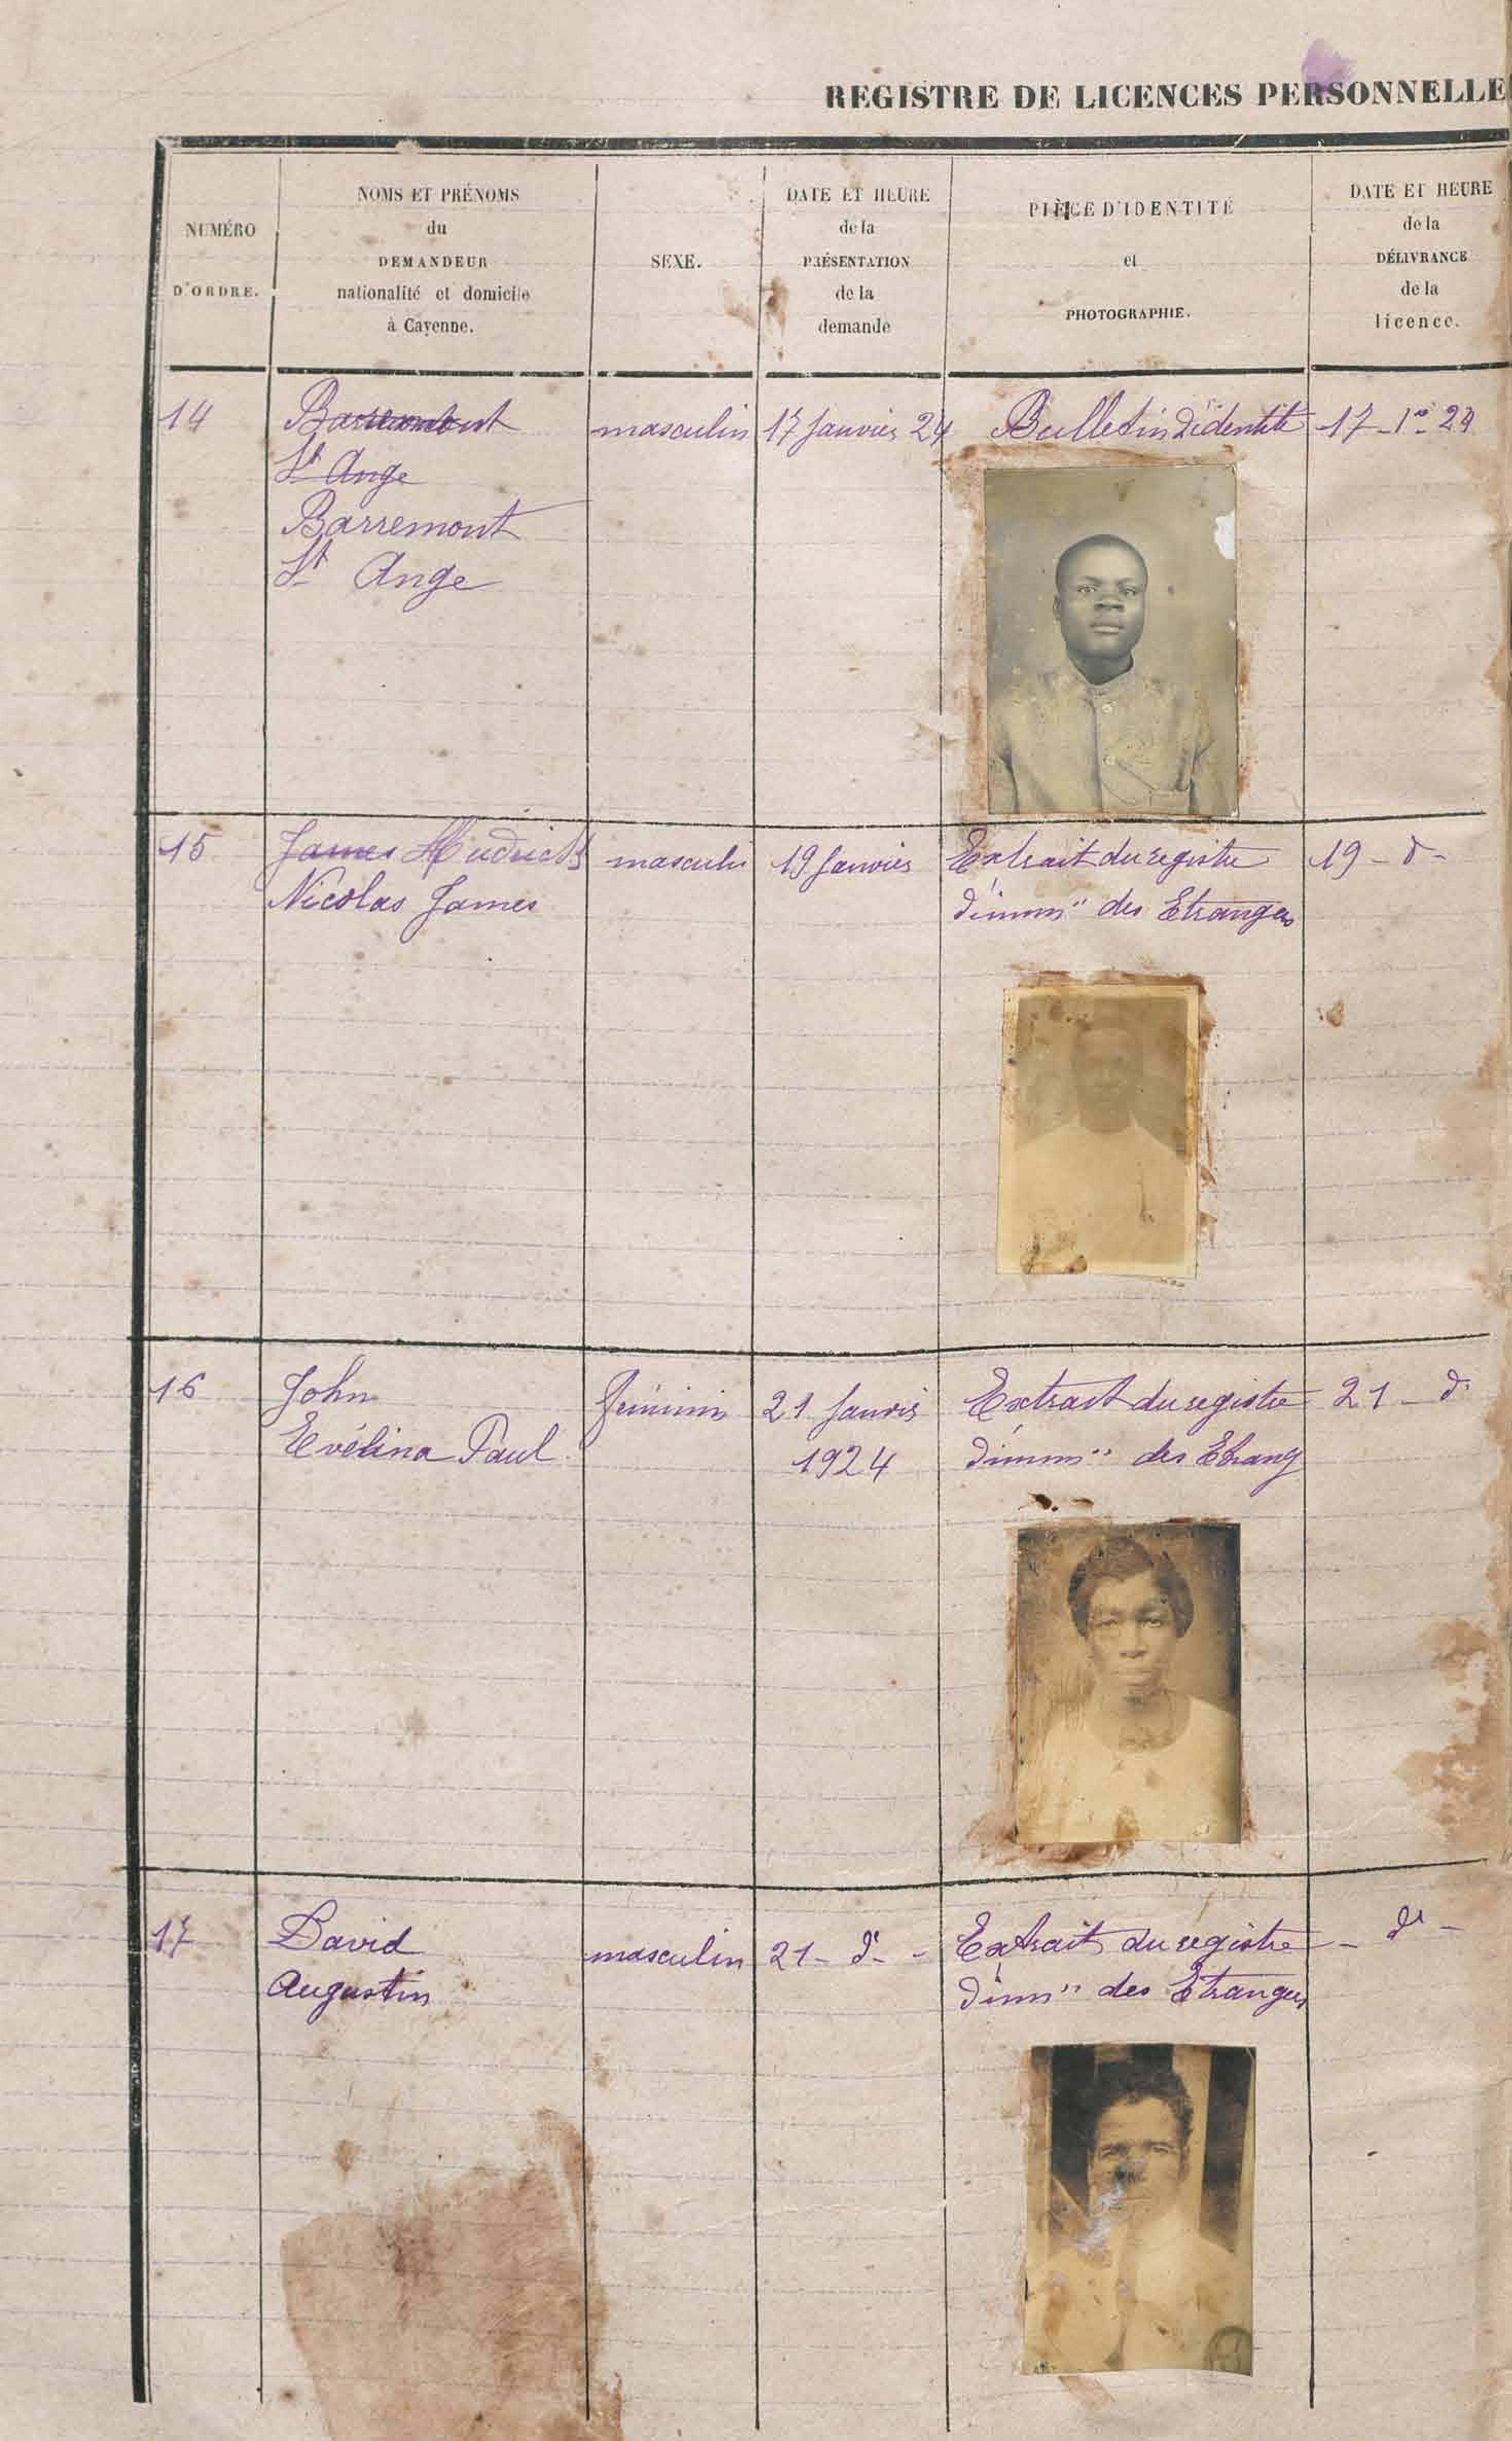 REGISTRE DE LICENCES PERSONNELLE
NUMÉRO
D'ORDRE.
NOMS ET PRÉNOMS
du
DEMANDEUR
nationalité et domicile
à Cayenne.
SEXE.
DATE ET HEURE
de la
PRÉSENTATION
de la
demande
PIÈCE D'IDENTITÉ
et
PHOTOGRAPHIE.
DATE ET HEURE
de la
DÉLIVRANCE
de la
licence.
14
St Ange
Barremont
St Ange
masculin
17 Janvier 24
Bulletin d'identité
17-1er-24
15
James
Nicolas James
masculin
19 Janvier
Extrait du registre
d'imm" des Etrangers
19 - d -
16
John
Evélina Paul
féminin
21 Janvier
1924
Extrait du registre
d'imm" des Etrang
21 - do
17
David
Augustin
masculin
21 - do -
Extrait du registre
d'imm" des Etrangers
- do -